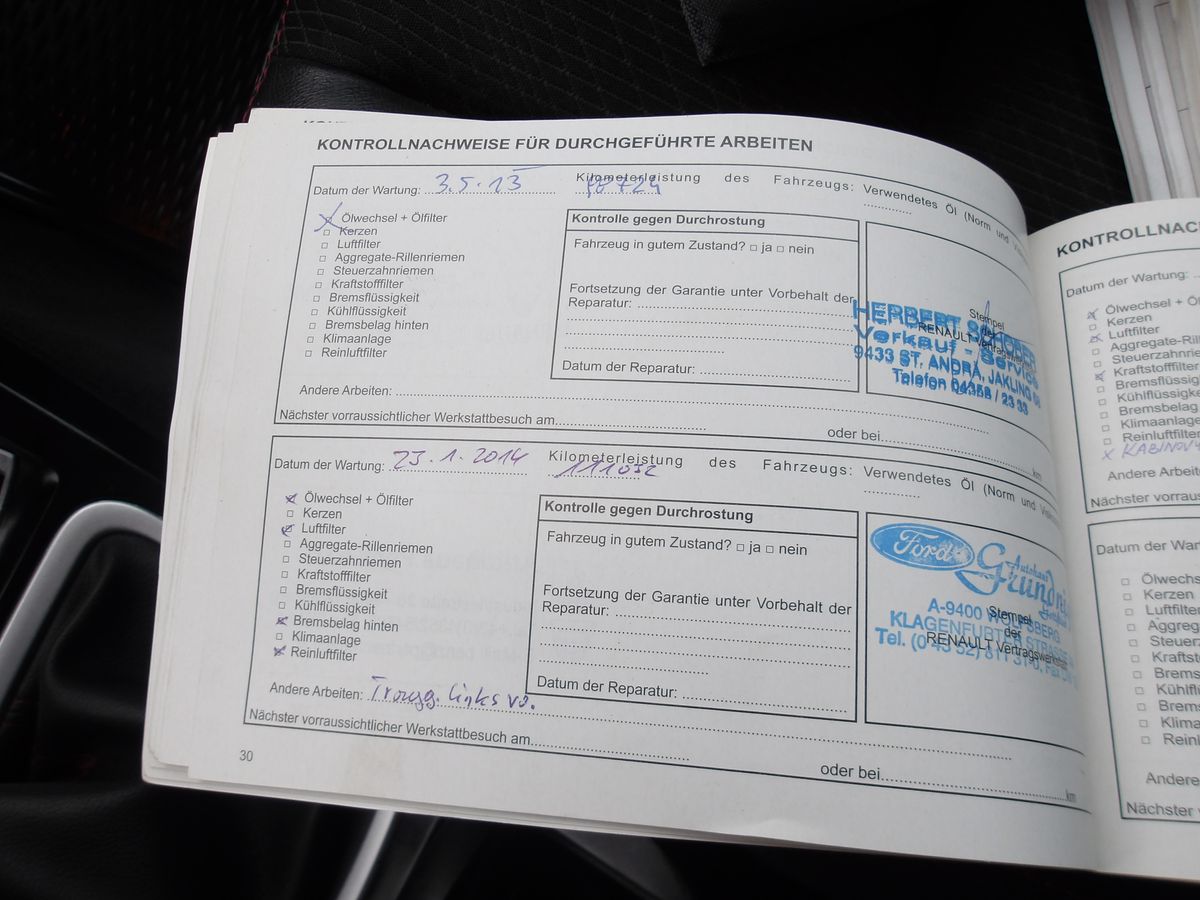 KONTROLLNACHWEISE FÜR DURCHGEFÜHRTE ARBEITEN
Datum der Wartung: 3.5.13 Kilometerleistung des Fahrzeugs: Verwendetes Öl (Norm und
Ölwechsel + Ölfilter
Kerzen
Luftfilter
Aggregate-Rillenriemen
Steuerzahnriemen
Kraftstofffilter
Bremsflüssigkeit
Kühlflüssigkeit
Bremsbelag hinten
Klimaanlage
Reinluftfilter
Kontrolle gegen Durchrostung
Fahrzeug in gutem Zustand? □ ja □ nein
Fortsetzung der Garantie unter Vorbehalt der
Reparatur:
Datum der Reparatur:
Stempel
der
RENAULT Vertragswerkstatt
HERBERT
Verkauf - Service
9433 ST. ANDRÄ, JAKLING
Telefon 04358 / 23 33
Andere Arbeiten:
Nächster vorraussichtlicher Werkstattbesuch am
oder bei km
Datum der Wartung: 23.1.2014 Kilometerleistung des Fahrzeugs: 111032 Verwendetes Öl (Norm und
Ölwechsel + Ölfilter
Kerzen
Luftfilter
Aggregate-Rillenriemen
Steuerzahnriemen
Kraftstofffilter
Bremsflüssigkeit
Kühlflüssigkeit
Bremsbelag hinten
Klimaanlage
Reinluftfilter
Kontrolle gegen Durchrostung
Fahrzeug in gutem Zustand? □ ja □ nein
Fortsetzung der Garantie unter Vorbehalt der
Reparatur:
Datum der Reparatur:
Ford Autohaus
A-9400 WOLFSBERG
KLAGENFURTER STRASSE
Stempel
der
RENAULT Vertragswerkstatt
Andere Arbeiten: links vo.
Nächster vorraussichtlicher Werkstattbesuch am
oder bei km
30
KONTROLLNAC
Datum der Wartung:
Ölwechsel + Öl
Kerzen
Luftfilter
Aggregate-Ril
Steuerzahnri
Kraftstofffilter
Bremsflüssig
Kühlflüssigke
Bremsbelag
Klimaanlage
Reinluftfilter
x KABINOV
Andere Arbeite
Nächster vorau
Datum der War
Ölwechse
Kerzen
Luftfilter
Aggrega
Steuerz
Kraftsto
Bremsf
Kühlflü
Brems
Klima
Rein
Andere
Nächster v